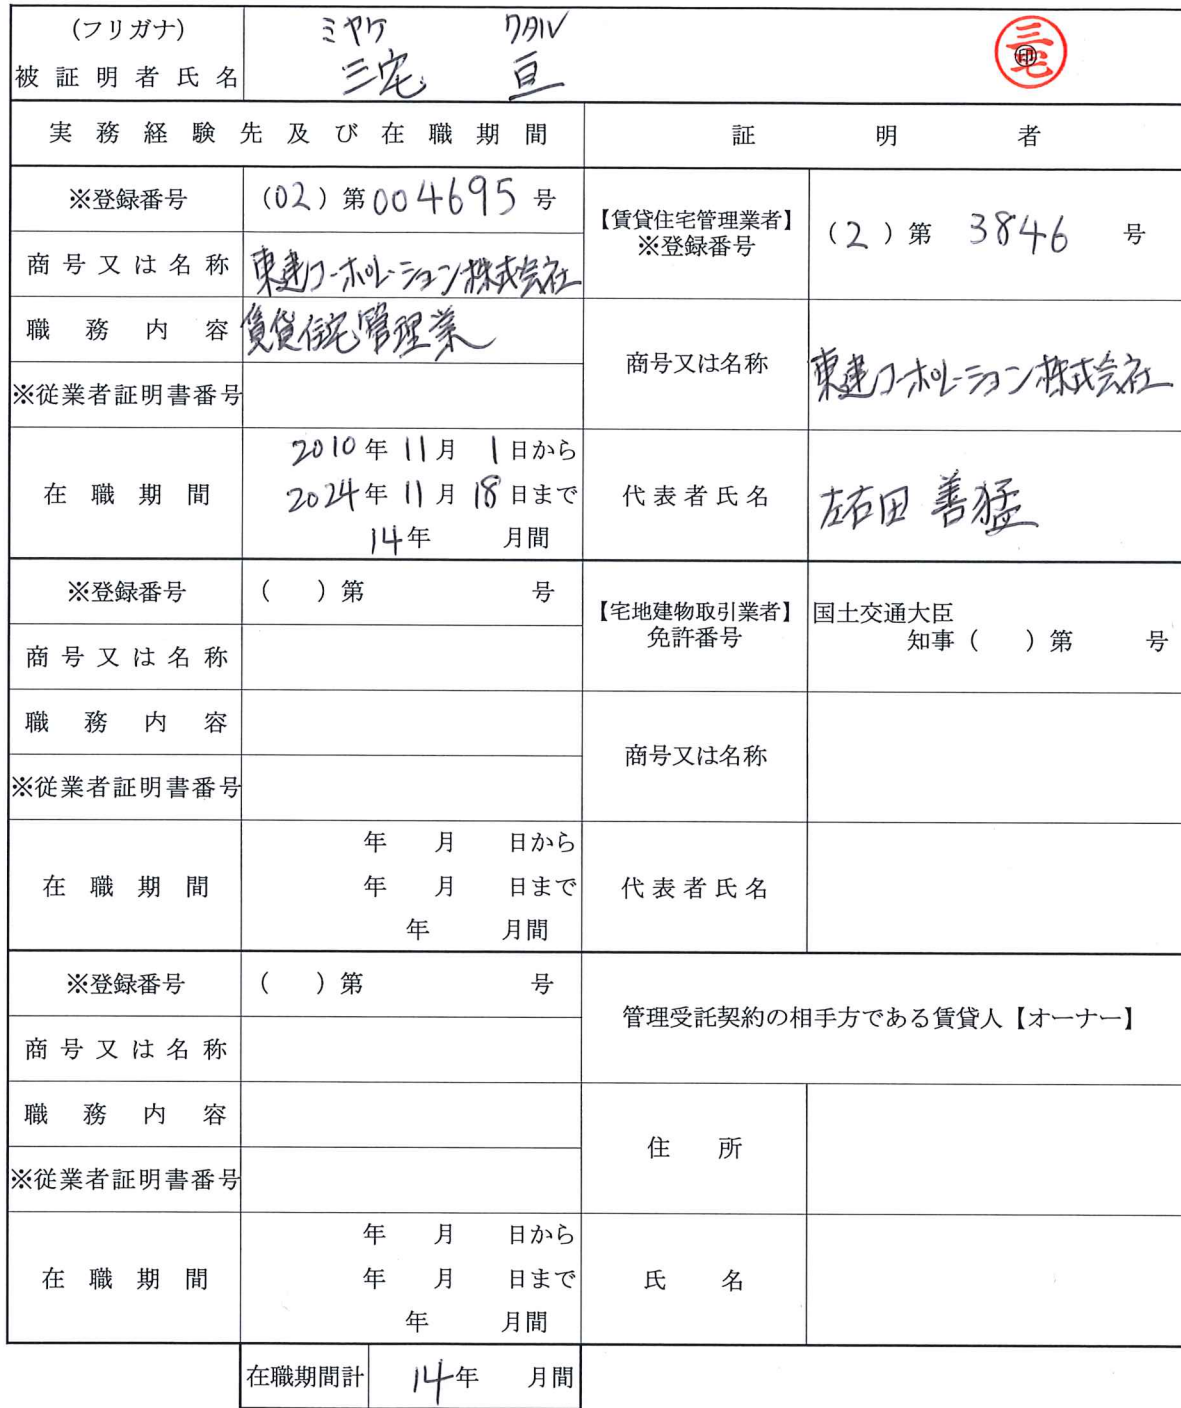 (フリガナ) ミヤケ ワタル
被証明者氏名 三宅 亘 ㊞ 三宅
実務経験先及び在職期間 証明者
※登録番号 (02)第004695号
商号又は名称 東建コーポレーション株式会社
職務内容 賃貸住宅管理業
※従業者証明書番号
在職期間 2010年11月1日から
2024年11月18日まで
14年 月間
【賃貸住宅管理業者】
※登録番号 (2)第 3846 号
商号又は名称 東建コーポレーション株式会社
代表者氏名 左右田 善猛
※登録番号 ( )第 号
商号又は名称
職務内容
※従業者証明書番号
在職期間 年 月 日から
年 月 日まで
年 月間
【宅地建物取引業者】
免許番号
国土交通大臣
知事( )第 号
商号又は名称
代表者氏名
※登録番号 ( )第 号
商号又は名称
職務内容
※従業者証明書番号
在職期間 年 月 日から
年 月 日まで
年 月間
管理受託契約の相手方である賃貸人【オーナー】
住所
氏名
在職期間計 14年 月間